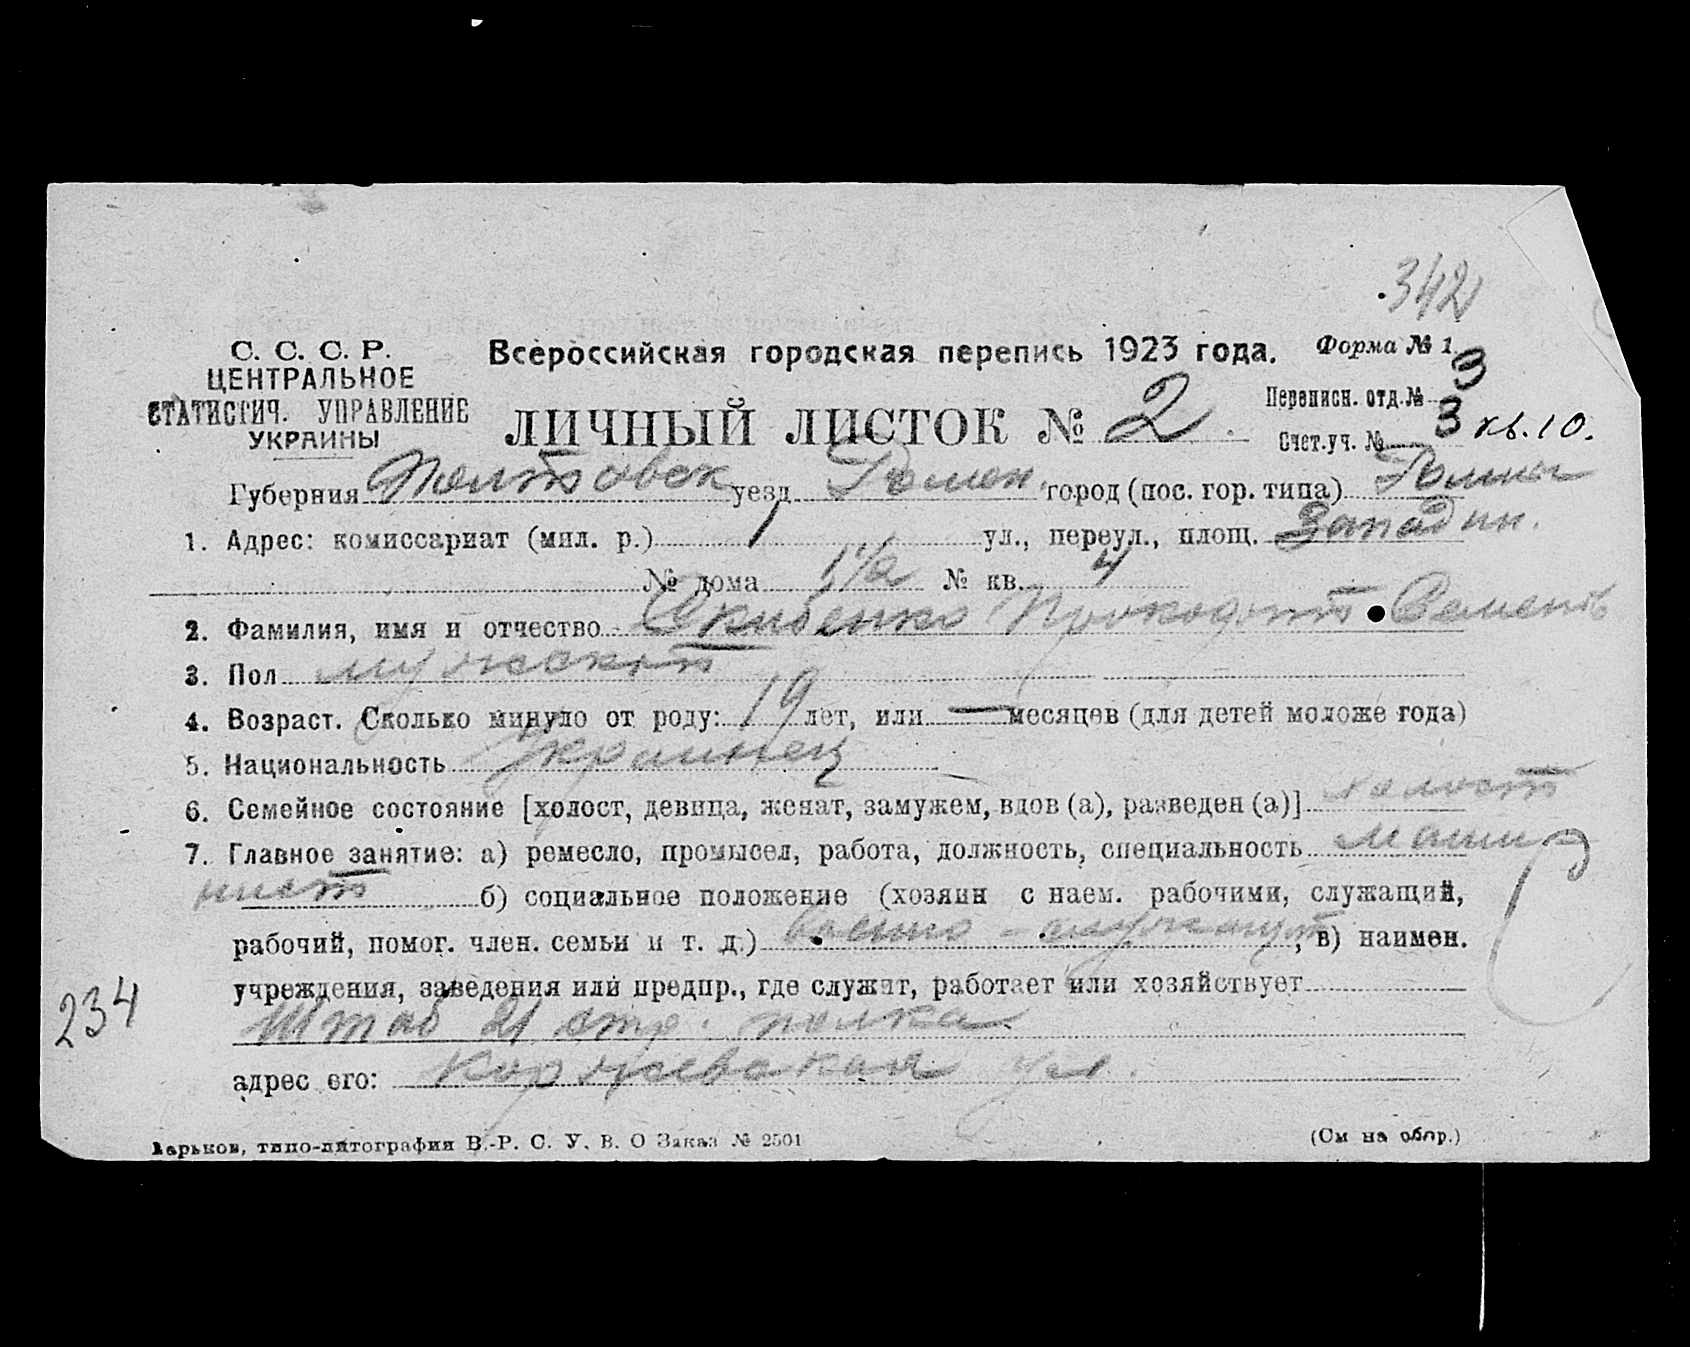 342
С. С. С. Р.
ЦЕНТРАЛЬНОЕ
СТАТИСТИЧ. УПРАВЛЕНИЕ
УКРАИНЫ
Всероссийская городская перепись 1923 года.
Форма № 1
ЛИЧНЫЙ ЛИСТОК № 2.
Переписн. отд. № 3
Счет.уч. № 3 кв. 10.
Губерния Полтовск уезд Ромен. город (пос. гор. типа) Ромны
1. Адрес: комиссариат (мил. р.) 1 ул., переул., площ. Западин.
№ дома 11/2 № кв. 4
2. Фамилия, имя и отчество Семен
3. Пол мужской
4. Возраст. Сколько минуло от роду: 19 лет, или — месяцев (для детей моложе года)
5. Национальность Украинец
6. Семейное состояние [холост, девица, женат, замужем, вдов (а), разведен (а)] холост
7. Главное занятие: а) ремесло, промысел, работа, должность, специальность маши
нист б) социальное положение (хозяин с наем. рабочими, служащий,
рабочий, помог. член. семьи и т. д.) военно - служащ, в) наимен.
учреждения, заведения или предпр., где служит, работает или хозяйствует
Штаб 21 стр. полка
234
адрес его: Коржевская ул.
Харьков, типо-литография В.-Р. С. У. В. О Заказ № 2501
(См на обор.)